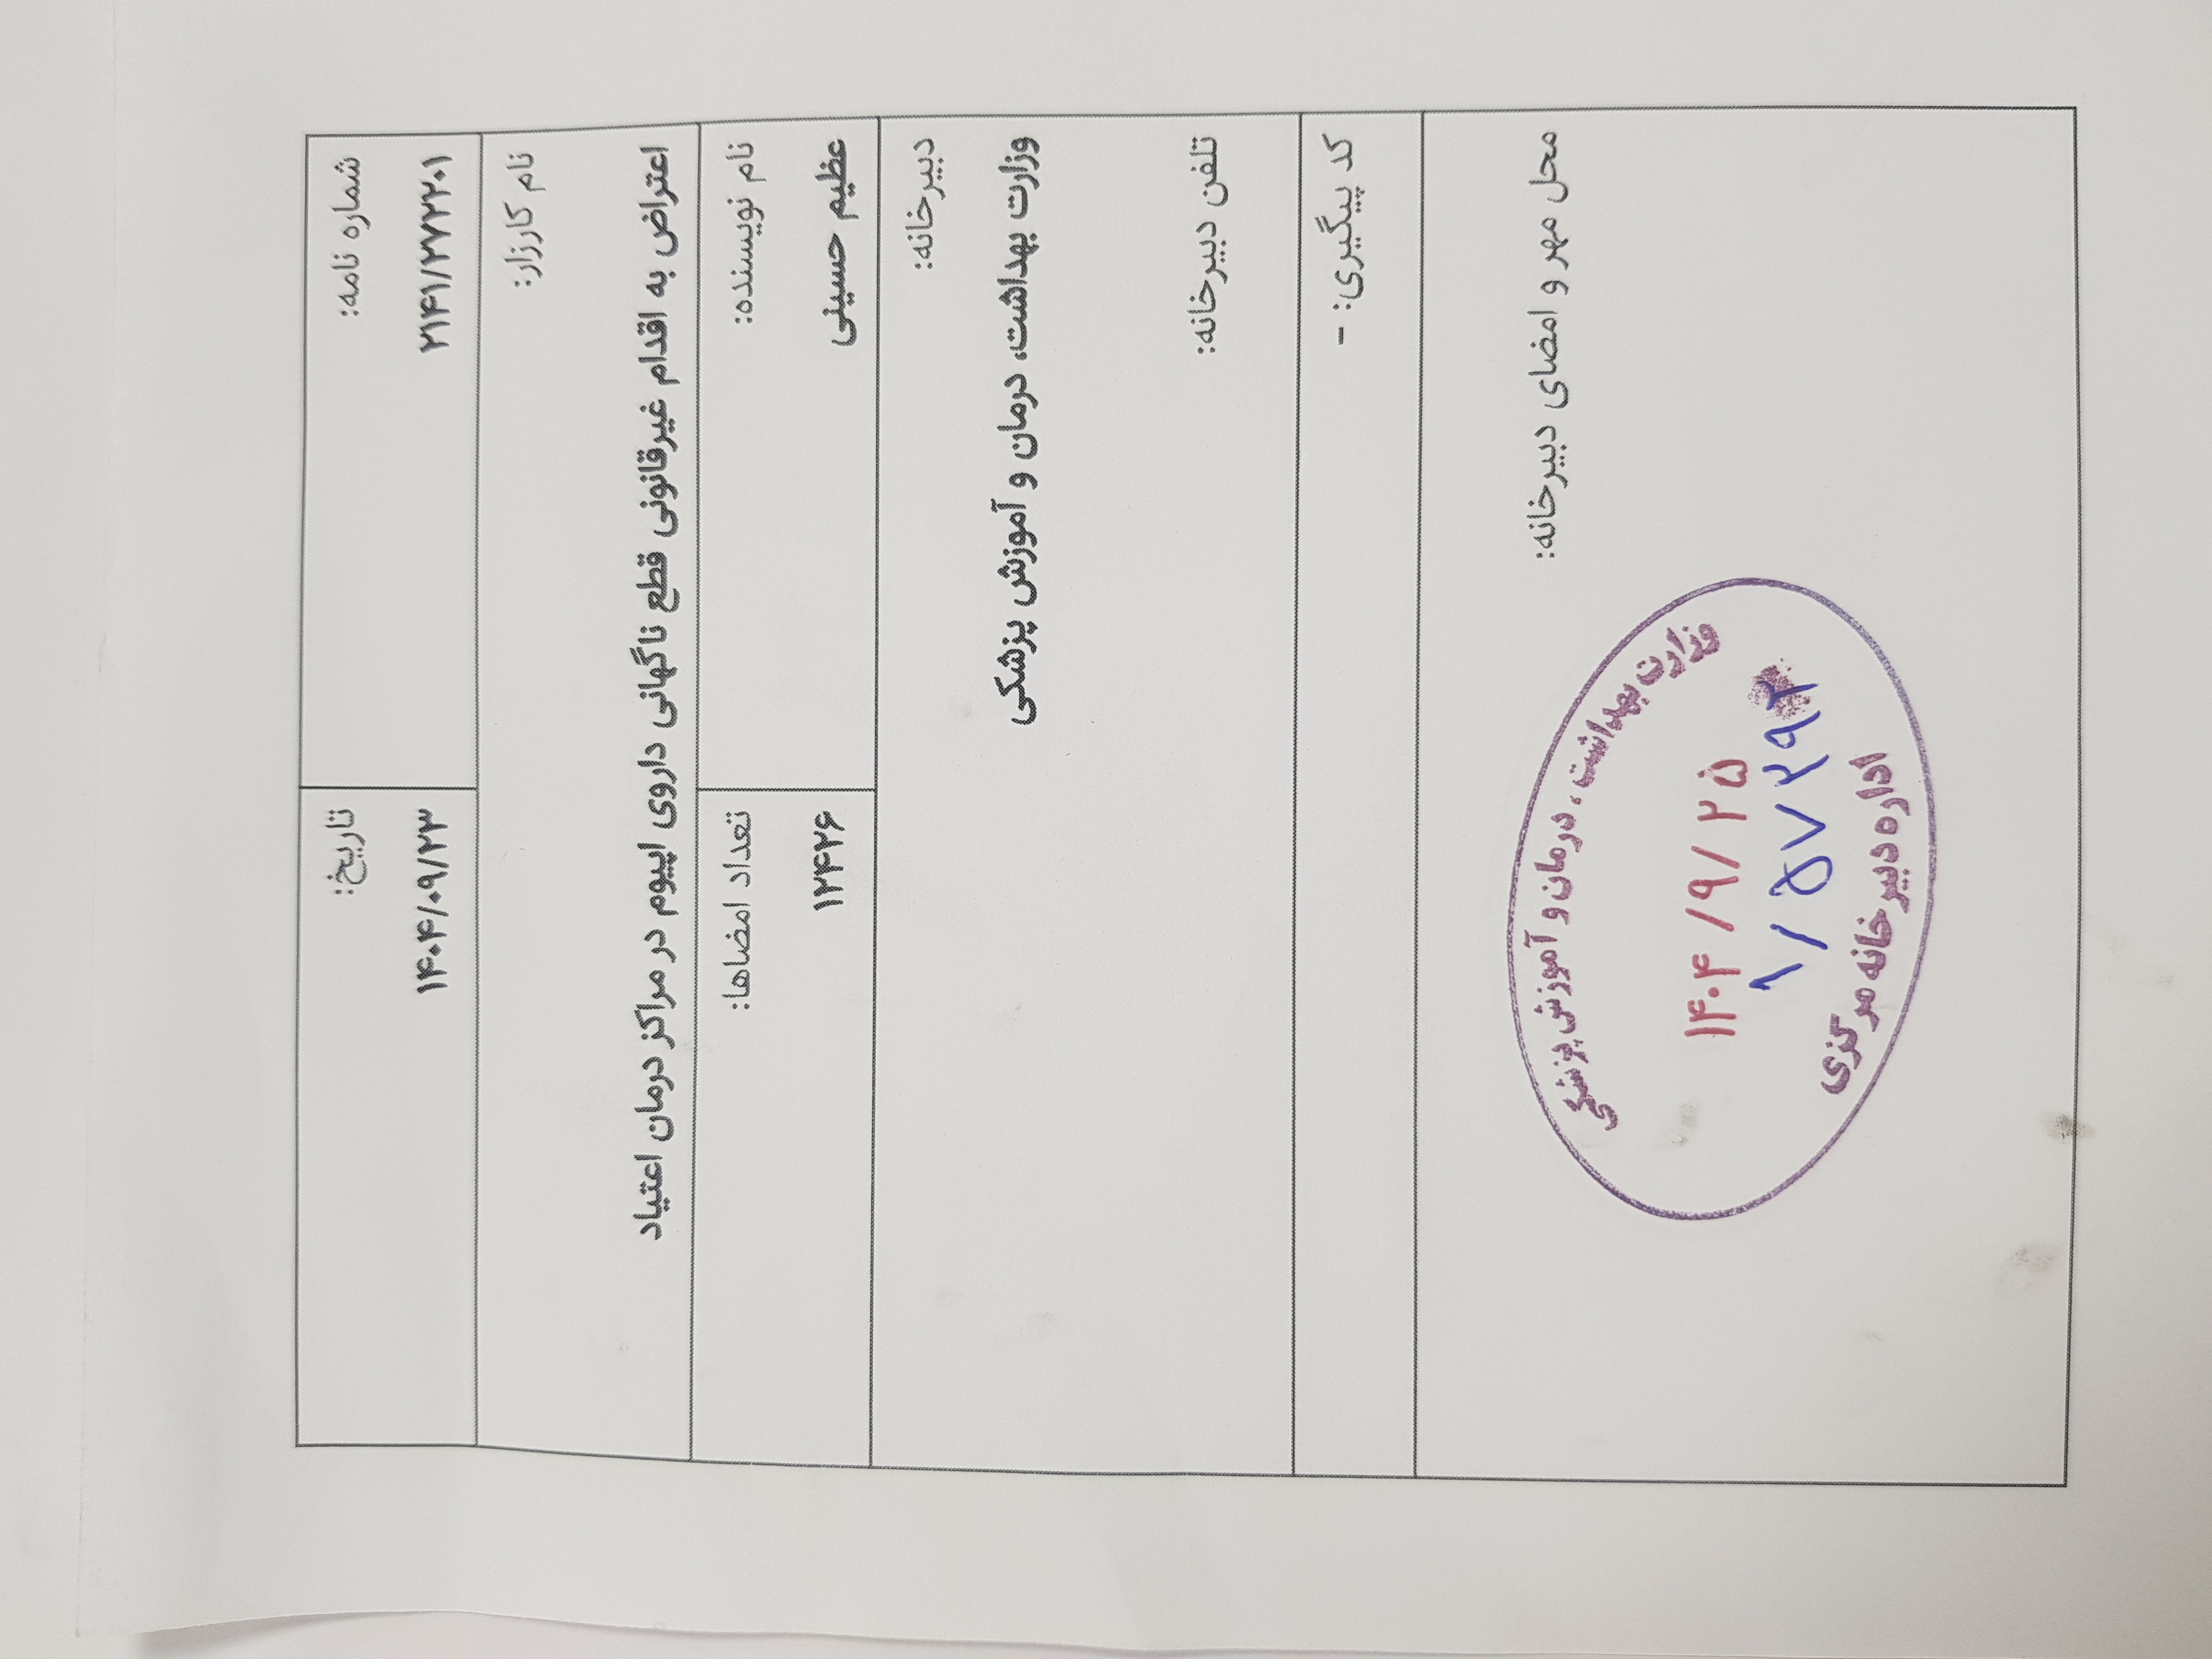 شماره نامه:
۲۱۴۱/۲۷۲۲۰۱
تاریخ:
۱۴۰۴/۰۹/۲۳
نام کارزار:
اعتراض به اقدام غیرقانونی قطع ناگهانی داروی اپیوم در مراکز درمان اعتیاد
نام نویسنده:
عظیم حسینی
تعداد امضاها:
۱۲۴۲۶
دبیرخانه:
وزارت بهداشت، درمان و آموزش پزشکی
تلفن دبیرخانه:
کد پیگیری: -
محل مهر و امضای دبیرخانه:
وزارت بهداشت، درمان و آموزش پزشکی
۱۴۰۴/۹/۲۵
اداره دبیرخانه مرکزی